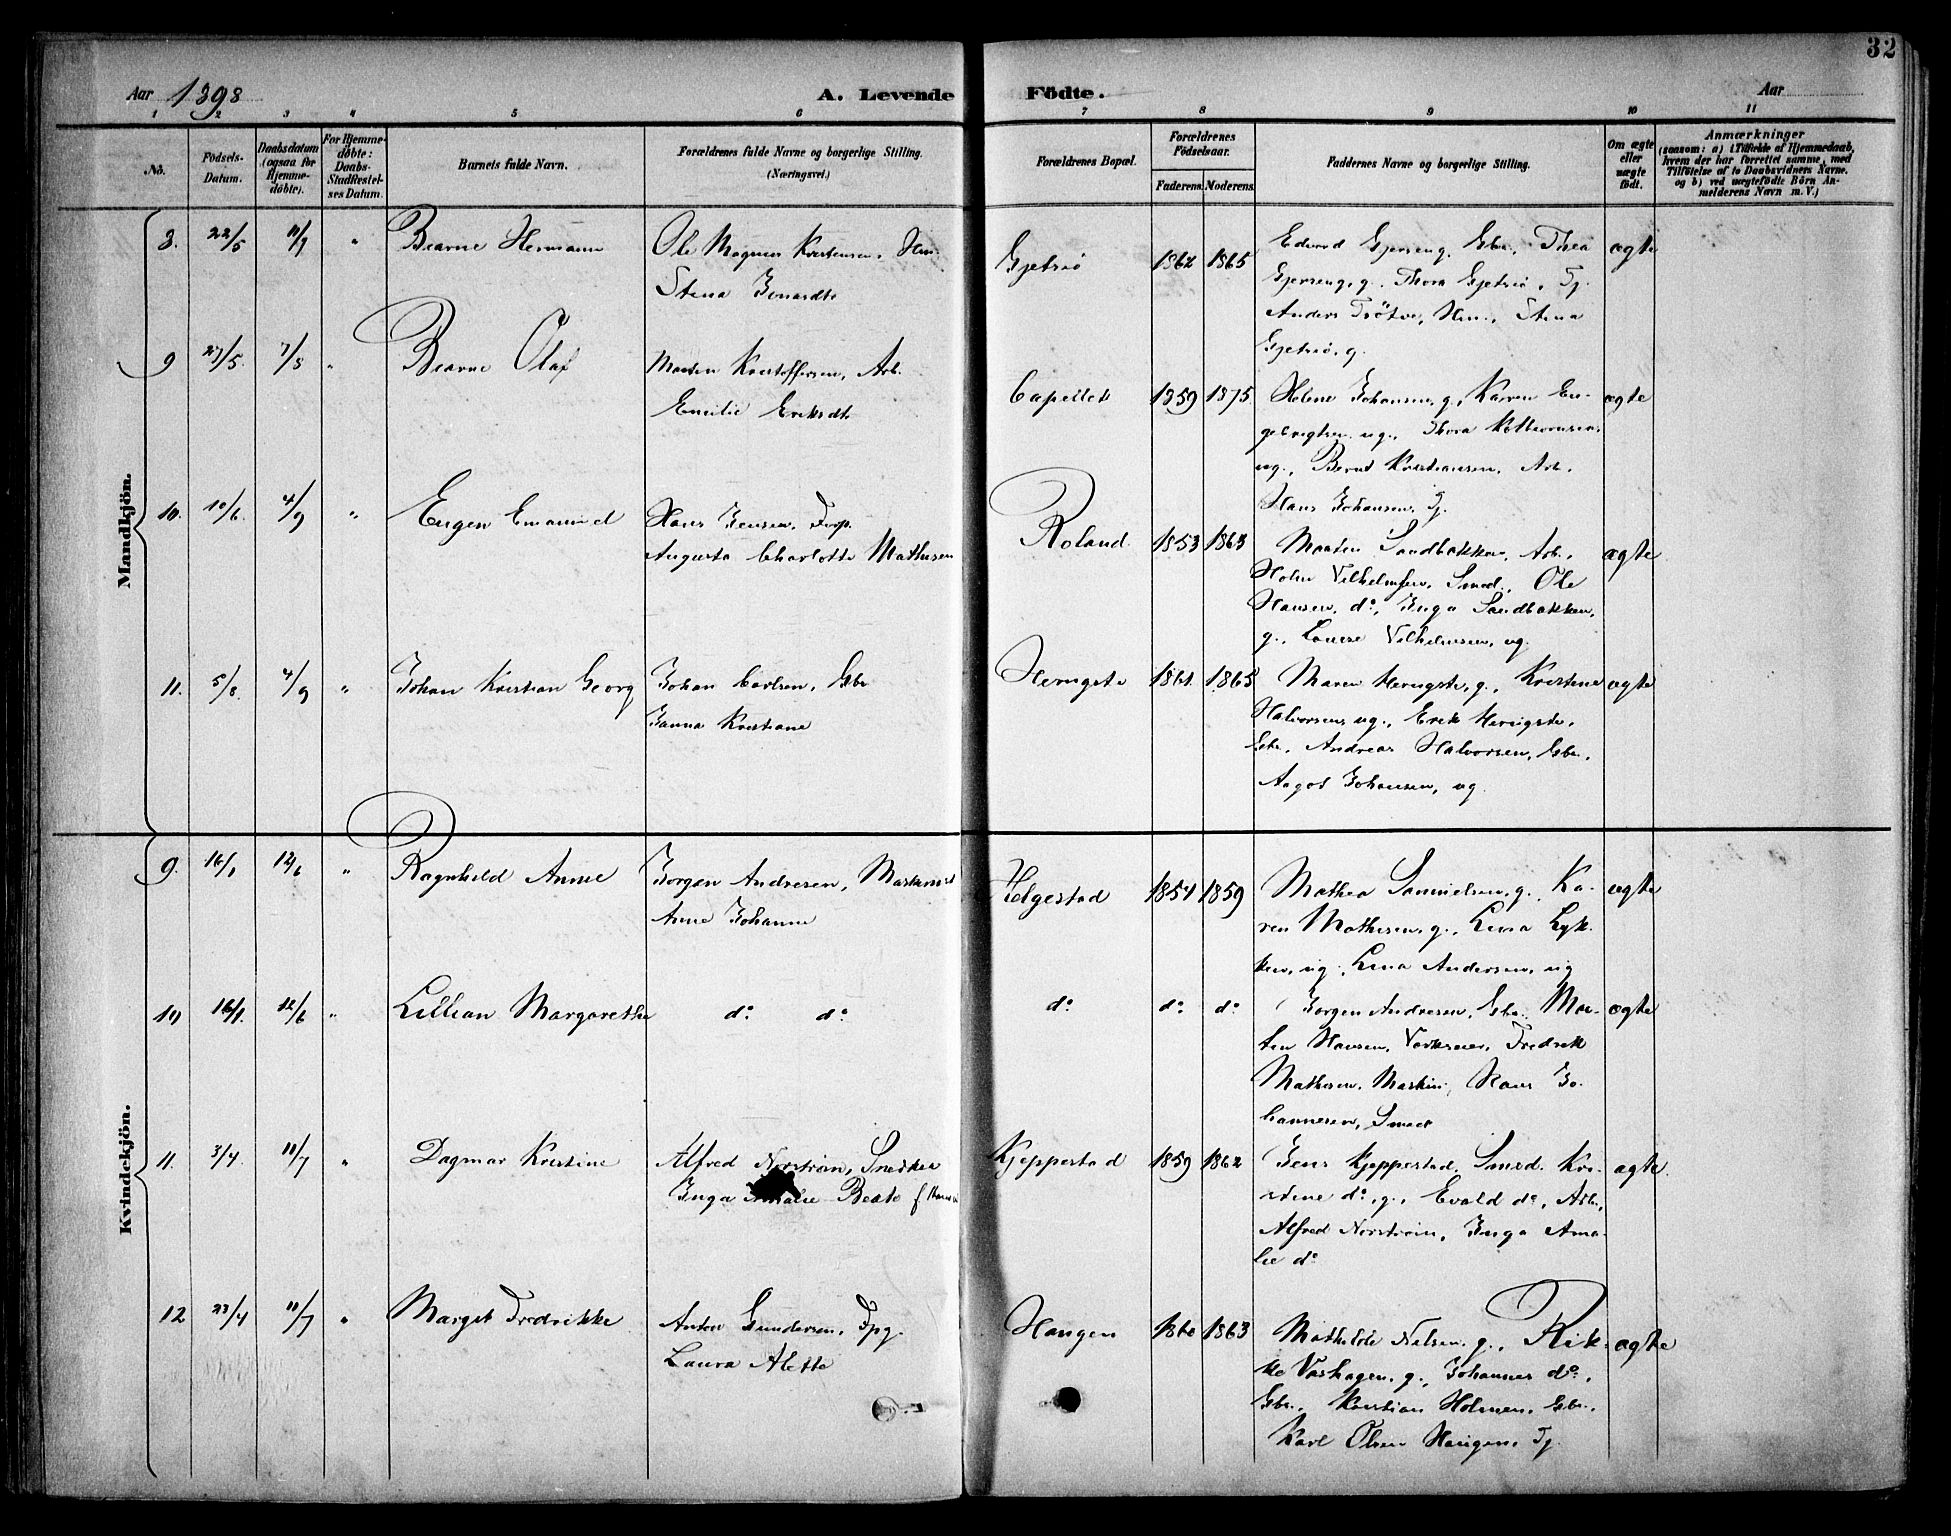 32
Aar 1898
A. Levende Födte.
Aar
1 2 3 4 5 6 7 8 9 10 11
No.
Födsels-
Datum.
Daabsdatum
(ogsaa for
Hjemme-
döbte).
For Hjemme-
döbte:
Daabs-
Stadfæstel-
ses Datum.
Barnets fulde Navn.
Forældrenes fulde Navne og borgerlige Stilling.
(Næringsvei.)
Forældrenes Bopæl.
Forældrenes
Födselsaar.
Faderens. Moderens.
Faddernes Navne og borgerlige Stilling.
Om ægte
eller
uægte
födt.
Anmærkninger
(saasom: a) i Tilfælde af Hjemmedaab,
hvem der har forrettet samme, med
Tilföielse af to Daabsvidners Navne,
og b) ved uægtefödte Börn An-
melderens Navn m. V.)
Mandkjön.
8. 22/5 11/9 " Bearne Hermann
Ole Magnus Kristensen,
Stena
Gjetsiö 1862 1865
Edvard Gjerseng, Gbr., Thea
Gjerseng, g., Thora Gjetsiö, Tj.
Anders Hm., Stena
Gjetsiö, g.
ægte
9 27/5 7/8 " Bearne Olaf
Martin Kristoffersen, Arb.
Emilie Eriksdtr
1859 1875
Helene Johansen, g., Karen En-
gebrigtsen, ug., Thora
ug., Bernt Kristiansen, Arb.
Hans Johansen, Tj.
ægte
10. 10/6 4/9 " Eugen Emanuel
Hans Jensen,
Augusta Charlotte Mathisen
Roland 1853 1863
Martin Sandbakken, Arb.,
Holm Vilhelmsen, Smed, Ole
Hansen, do, Inga Sandbakken,
g., Louise Vilhelmsen, ug.
ægte
11. 5/8 4/9 " Johan Kristian Georg
Johan Carlsen, Gbr
Janna Kristiane
1861 1865
Maren g., Kristine
Halvorsen, ug., Erik
Gbr., Andreas Halvorsen, Gbr.,
Aagot Johansen, ug
ægte
Kvindekjön.
9. 16/1 12/6 " Ragnhild Anne
Jørgen Andresen, Maskinist
Anne Johanne
Helgestad 1854 1859
Mathea Samuelsen, g., Ka-
ren Mathisen, g., Lina Lyk-
ken, ug., Lina Andersen, ug
ægte
10 16/1. 12/6 " Lillian Margarethe
do do
do do do
Jørgen Andresen, Gbr., Mar-
tin Hansen, Fredrik
Mathisen, Maskin., Hans Jo-
hannesen, Smed
ægte
11. 3/4 11/7 " Dagmar Kristine
Alfred Norström, Snedker
Inga Amalie Beate f.
Kjeppestad 1859 1862
Jens Kjeppestad, Smed, Kri-
stine do, g., Evald do, Arb.,
Alfred Norström, Inga Ama-
lie do
ægte.
12 23/4 11/7 " Margit Fredrikke
Anton Gundersen, Fpg.
Laura Alette
Haugen 1860 1863
Mathilde Nilsen, g., Rik-
ke Vashagen, g., Johannes do,
Gbr., Kristian Holmen, Gbr.,
Karl Olsen Haugen, Tj.
ægte